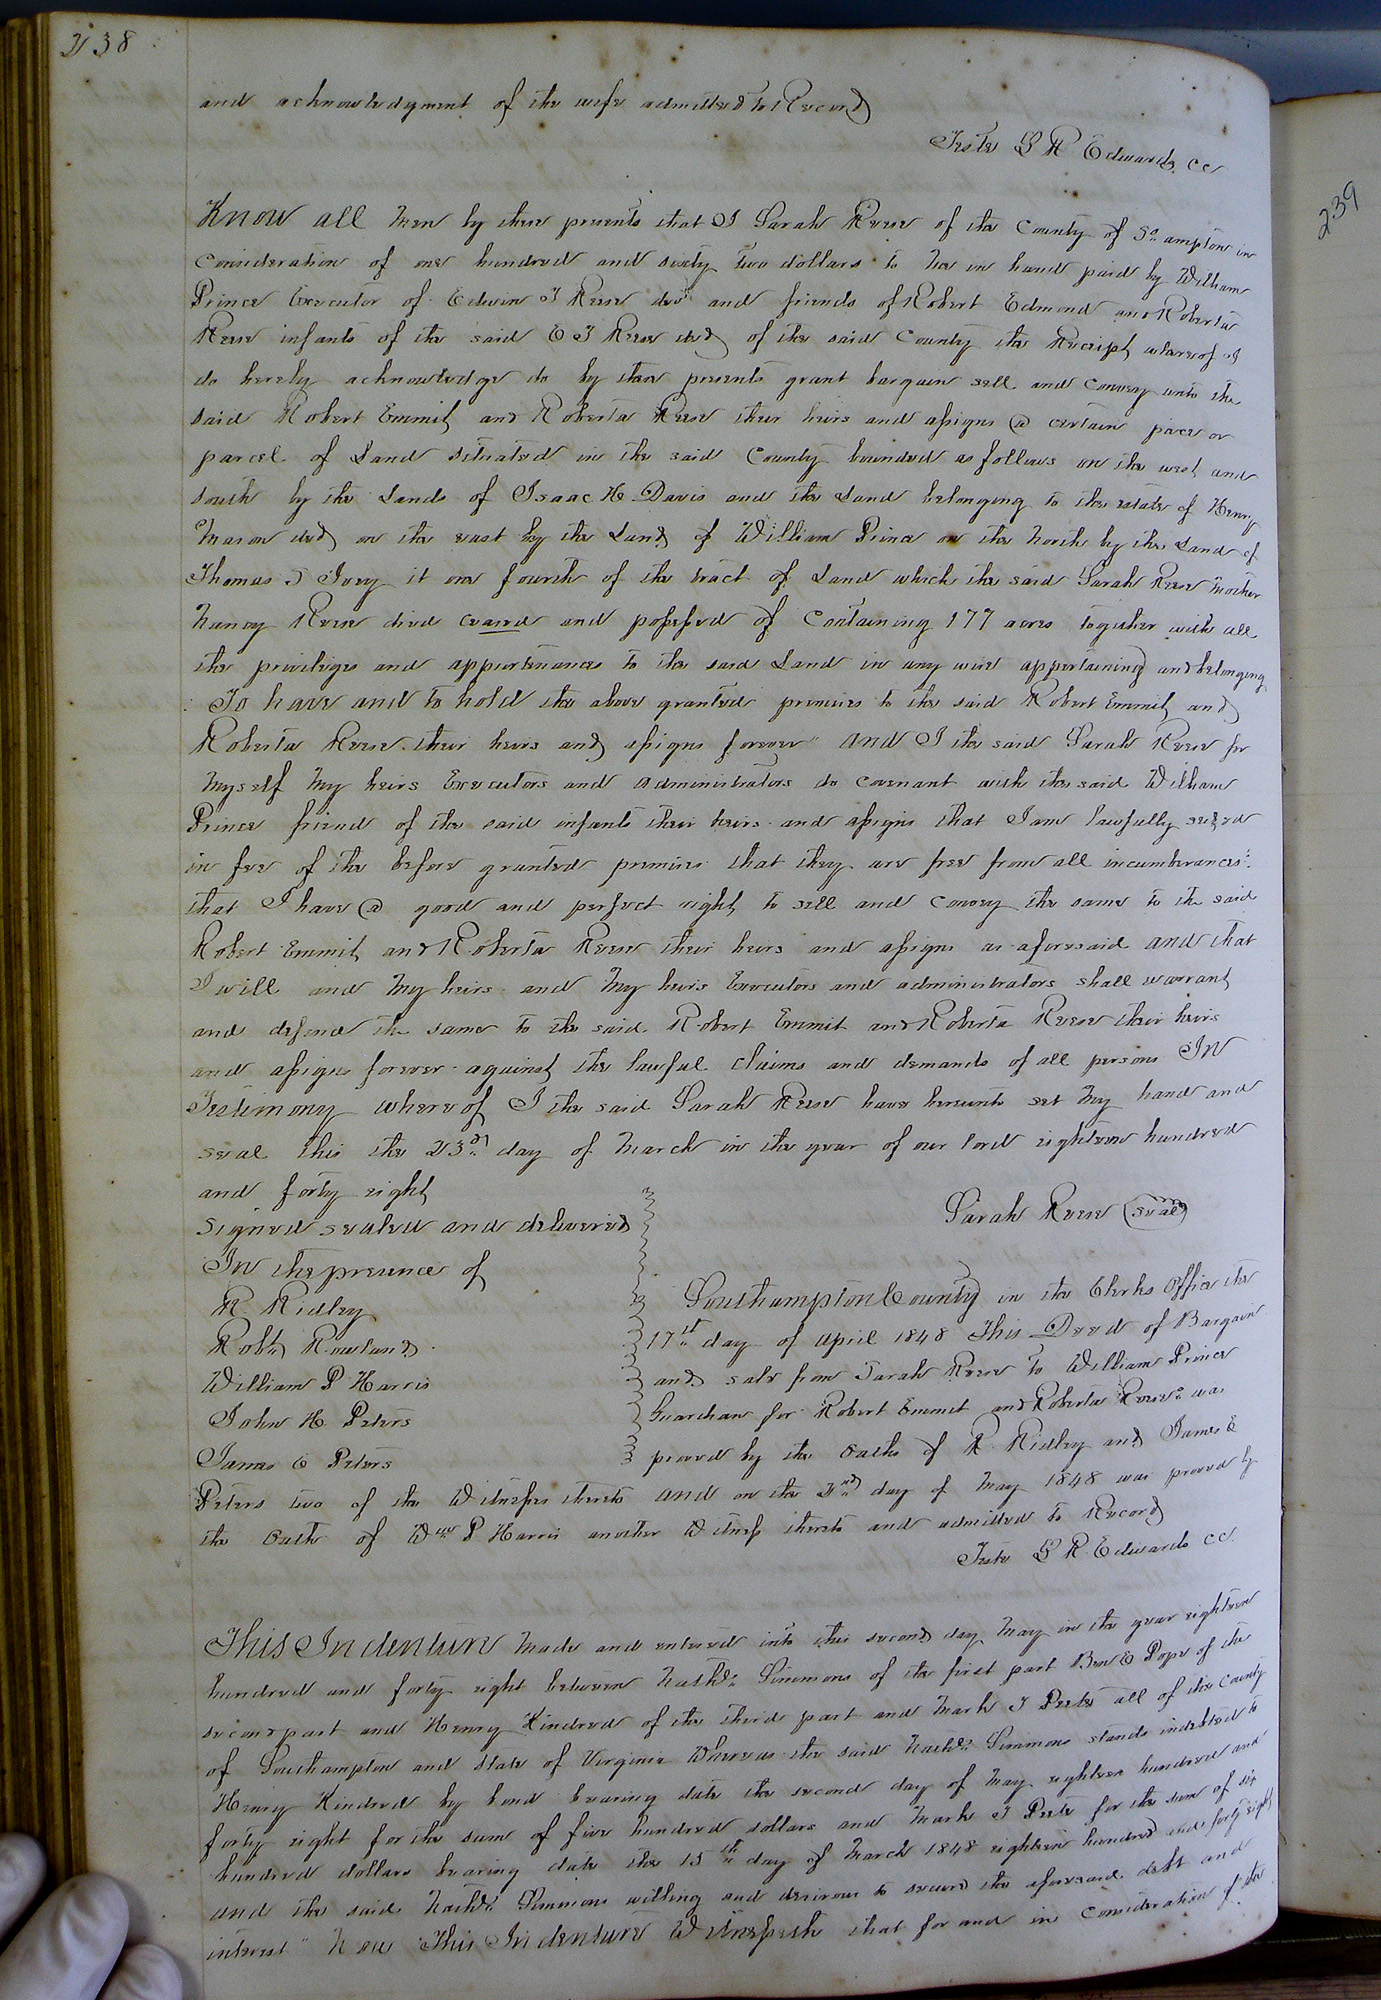 238
and acknowledgment of the wife admitted to Record
Teste L R Edwards. CC
239
Know all Men by these presents that I Sarah Reese of the County of So.ampton in
consideration of one hundred and sixty two dollars to me in hand paid by William
Prince Executor of Edwin T Reese decd and friends of Robert Edmond and Roberta
Reese infants of the said E T Reese decd of the said County the Receipt whereof I
do hereby acknowledge do by these presents grant bargain sell and convey unto the
said Robert Emmit and Roberta Reese their heirs and assigns a certain piece or
parcel of Land situated in the said County bounded as follows on the west and
south by the Lands of Isaac H Davis and the Land belonging to the estate of Henry
Mason decd on the east by the Land of William Prince on the North by the Land of
Thomas J Ivey it one fourth of the tract of Land which the said Sarah Reese Mother
Nancy Reese died ceased and possessed of Containing 177 acres together with all
the privileges and appurtenances to the said Land in any wise appertaining and belonging
To have and to hold the above granted premises to the said Robert Emmit and
Roberta Reese their heirs and assigns forever" and I the said Sarah Reese for
Myself My heirs Executors and administrators do covenant with the said William
Prince friend of the said infants their heirs and assigns that I am lawfully seized
in fee of the before granted premises that they are free from all incumberances
that I have a good and perfect right to sell and convey the same to the said
Robert Emmit and Roberta Reese their heirs and assigns as aforesaid and that
I will and My heirs and My heirs Executors and administrators shall warrant
and defend the same to the said Robert Emmit and Roberta Reese their heirs
and assigns forever against the lawful claims and demands of all persons IN
Testimony whereof I the said Sarah Reese have hereunto set My hand and
seal this the 23rd day of March in the year of our lord eighteen hundred
and forty eight
Sarah Reese (seal)
Signed sealed and delivered
In the presence of
R. Ridley
Robt Rowland
William P Harris
John H Peters
James E Peters
Southampton County in the Clerks Office the
17th day of april 1848 This Deed of Bargain
and sale from Sarah Reese to William Prince
Guardian for Robert Emmit and Roberta Reese was
proved by the oaths of R. Ridley and James E
Peters two of the Witnesses thereto and on the 2nd day of May 1848 was proved by
the oath of Wm P Harris another Witness thereto and admitted to Record
Teste L R Edwards CC.
This Indenture Made and entered into this second day May in the year eighteen
hundred and forty eight between Nathl. Simmons of the first part Ben E Pope of the
second part and Henry Kindred of the third part and Mark J Peete all of the County
of Southampton and State of Virginia Whereas the said Nathl. Simmons stands indebted to
Henry Kindred by bond bearing date the second day of May eighteen hundred and
forty eight for the sum of five hundred dollars and Mark J Peete for the sum of six
hundred dollars bearing date the 15th day of March 1848 eighteen hundred and forty eight
and the said Nathl. Simmons willing and desirous to secure the aforesaid debt and
interest" Now This Indenture Witnesseth that for and in consideration of the